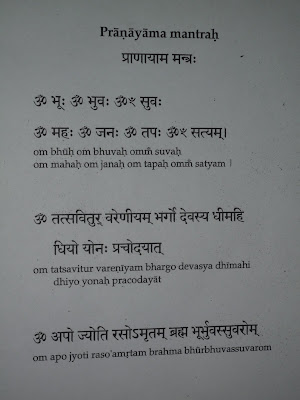 Prāṇāyāma mantraḥ
प्राणायाम मन्त्रः
ॐ भूः ॐ भुवः ॐ‌ꣳ सुवः
ॐ महः ॐ जनः ॐ तपः ॐ‌ꣳ सत्यम्।
om bhūḥ om bhuvaḥ omṁ suvaḥ
om mahaḥ om janaḥ om tapaḥ omṁ satyam |
ॐ तत्सवितुर् वरेणीयम् भर्गो देवस्य धीमहि
धियो योनः प्रचोदयात्
om tatsavitur vareṇīyam bhargo devasya dhīmahi
dhiyo yonaḥ pracodayāt
ॐ अपो ज्योति रसोऽमृतम् ब्रह्म भूर्भुवस्सुवरोम्
om apo jyoti raso'amṛtam brahma bhūrbhuvassuvarom